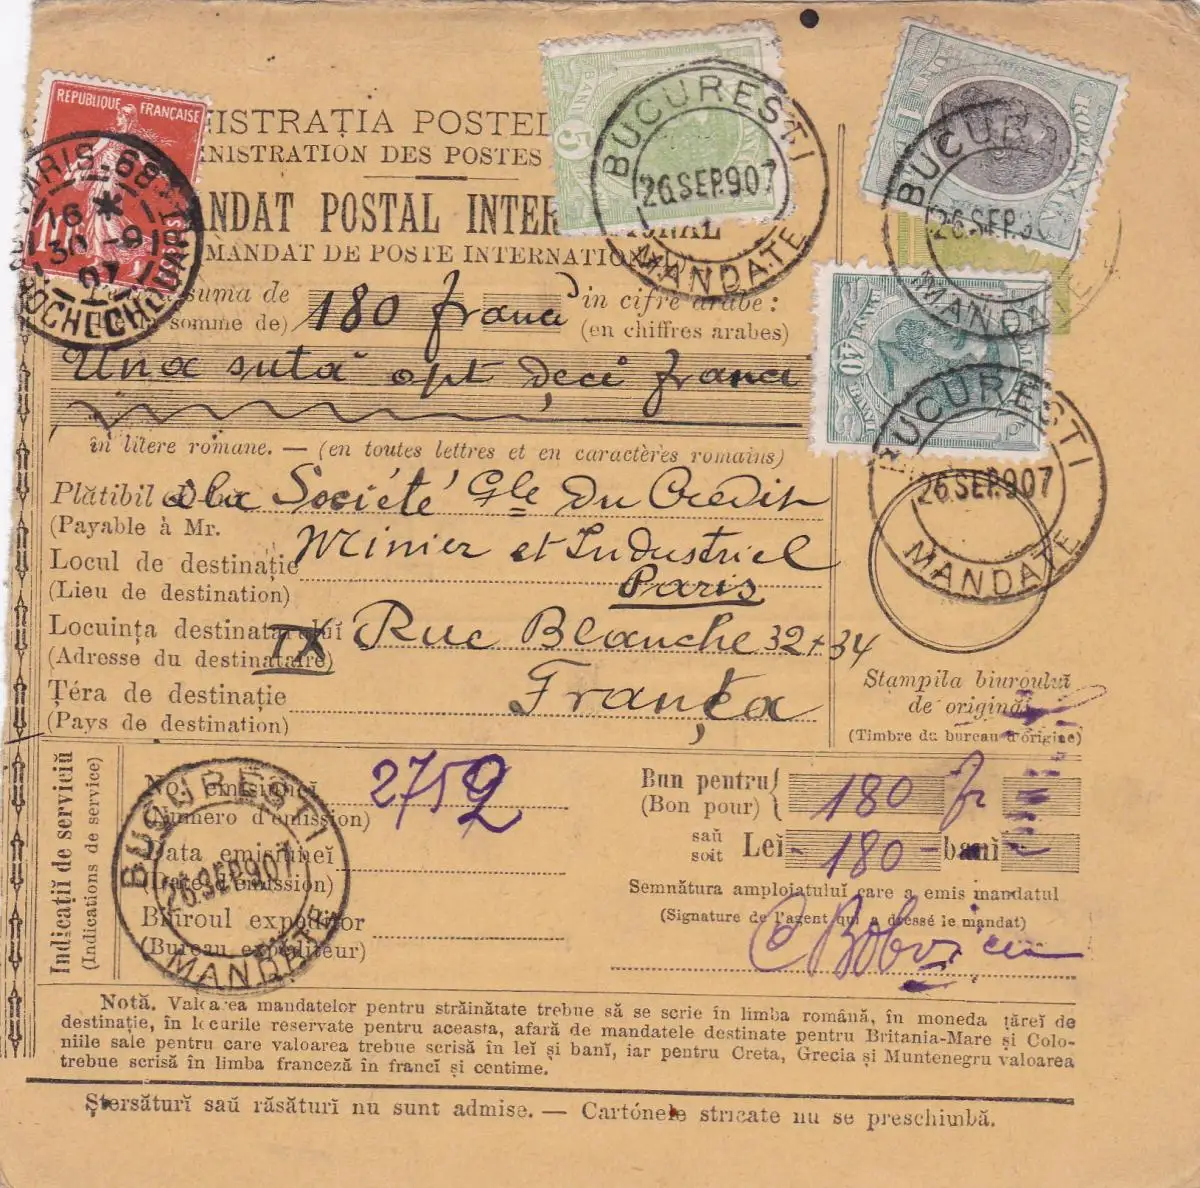 REPUBLIQUE FRANÇAISE
PARIS-68
16 * 
30 -9
07
ROCHECHOUART
BANI
5
BUCURESTI
26SEP.907
MANDATE
1
UN
ROMANIA
BUCURESTI
26SEP.907
MANDATE
40
BANI
BUCURESTI
26SEP.907
MANDATE
NISTRAȚIA POSTEL
NISTRATION DES POSTES
NDAT POSTAL INTER ONAL
MANDAT DE POSTE INTERNATION
suma de 180 francĭ în cifre arabe:
somme de) (en chiffres arabes)
Una sută opt deci franci
în litere romane. — (en toutes lettres et en caractères romains)
Plătibil d la Société Gle du Credit
(Payable à Mr. Minier et Industriel
Locul de destinație Paris
(Lieu de destination)
Locuința destinatarului IX Rue Blanche 32+34
(Adresse du destinataire)
Țéra de destinație Franța
(Pays de destination)
Stampila biuroului
de origină
(Timbre du bureau d'origine)
Indicațiĭ de serviciŭ
(Indications de service)
No. emisiuneĭ 2752
(Numéro d'émission)
Data emisiuneĭ
(Date d'émission)
Biuroul expeditor
(Bureau expéditeur)
BUCURESTI
26SEP.907
MANDATE
Bun pentru 180 fr
(Bon pour)
saŭ
soit Leĭ - 180 - banĭ
Semnătura amploiatuluĭ care a emis mandatul
(Signature de l'agent qui a dressé le mandat)
Notă. Valoarea mandatelor pentru străinătate trebue să se scrie în limba română, în moneda țăreĭ de
destinație, în locurile reservate pentru aceasta, afară de mandatele destinate pentru Britania-Mare și Colo-
niile sale pentru care valoarea trebue scrisă în leĭ și banĭ, iar pentru Creta, Grecia și Muntenegru valoarea
trebue scrisă în limba franceză în francĭ și centime.
Ștersăturĭ saŭ răsăturĭ nu sunt admise. — Cartónele stricate nu se preschimbă.